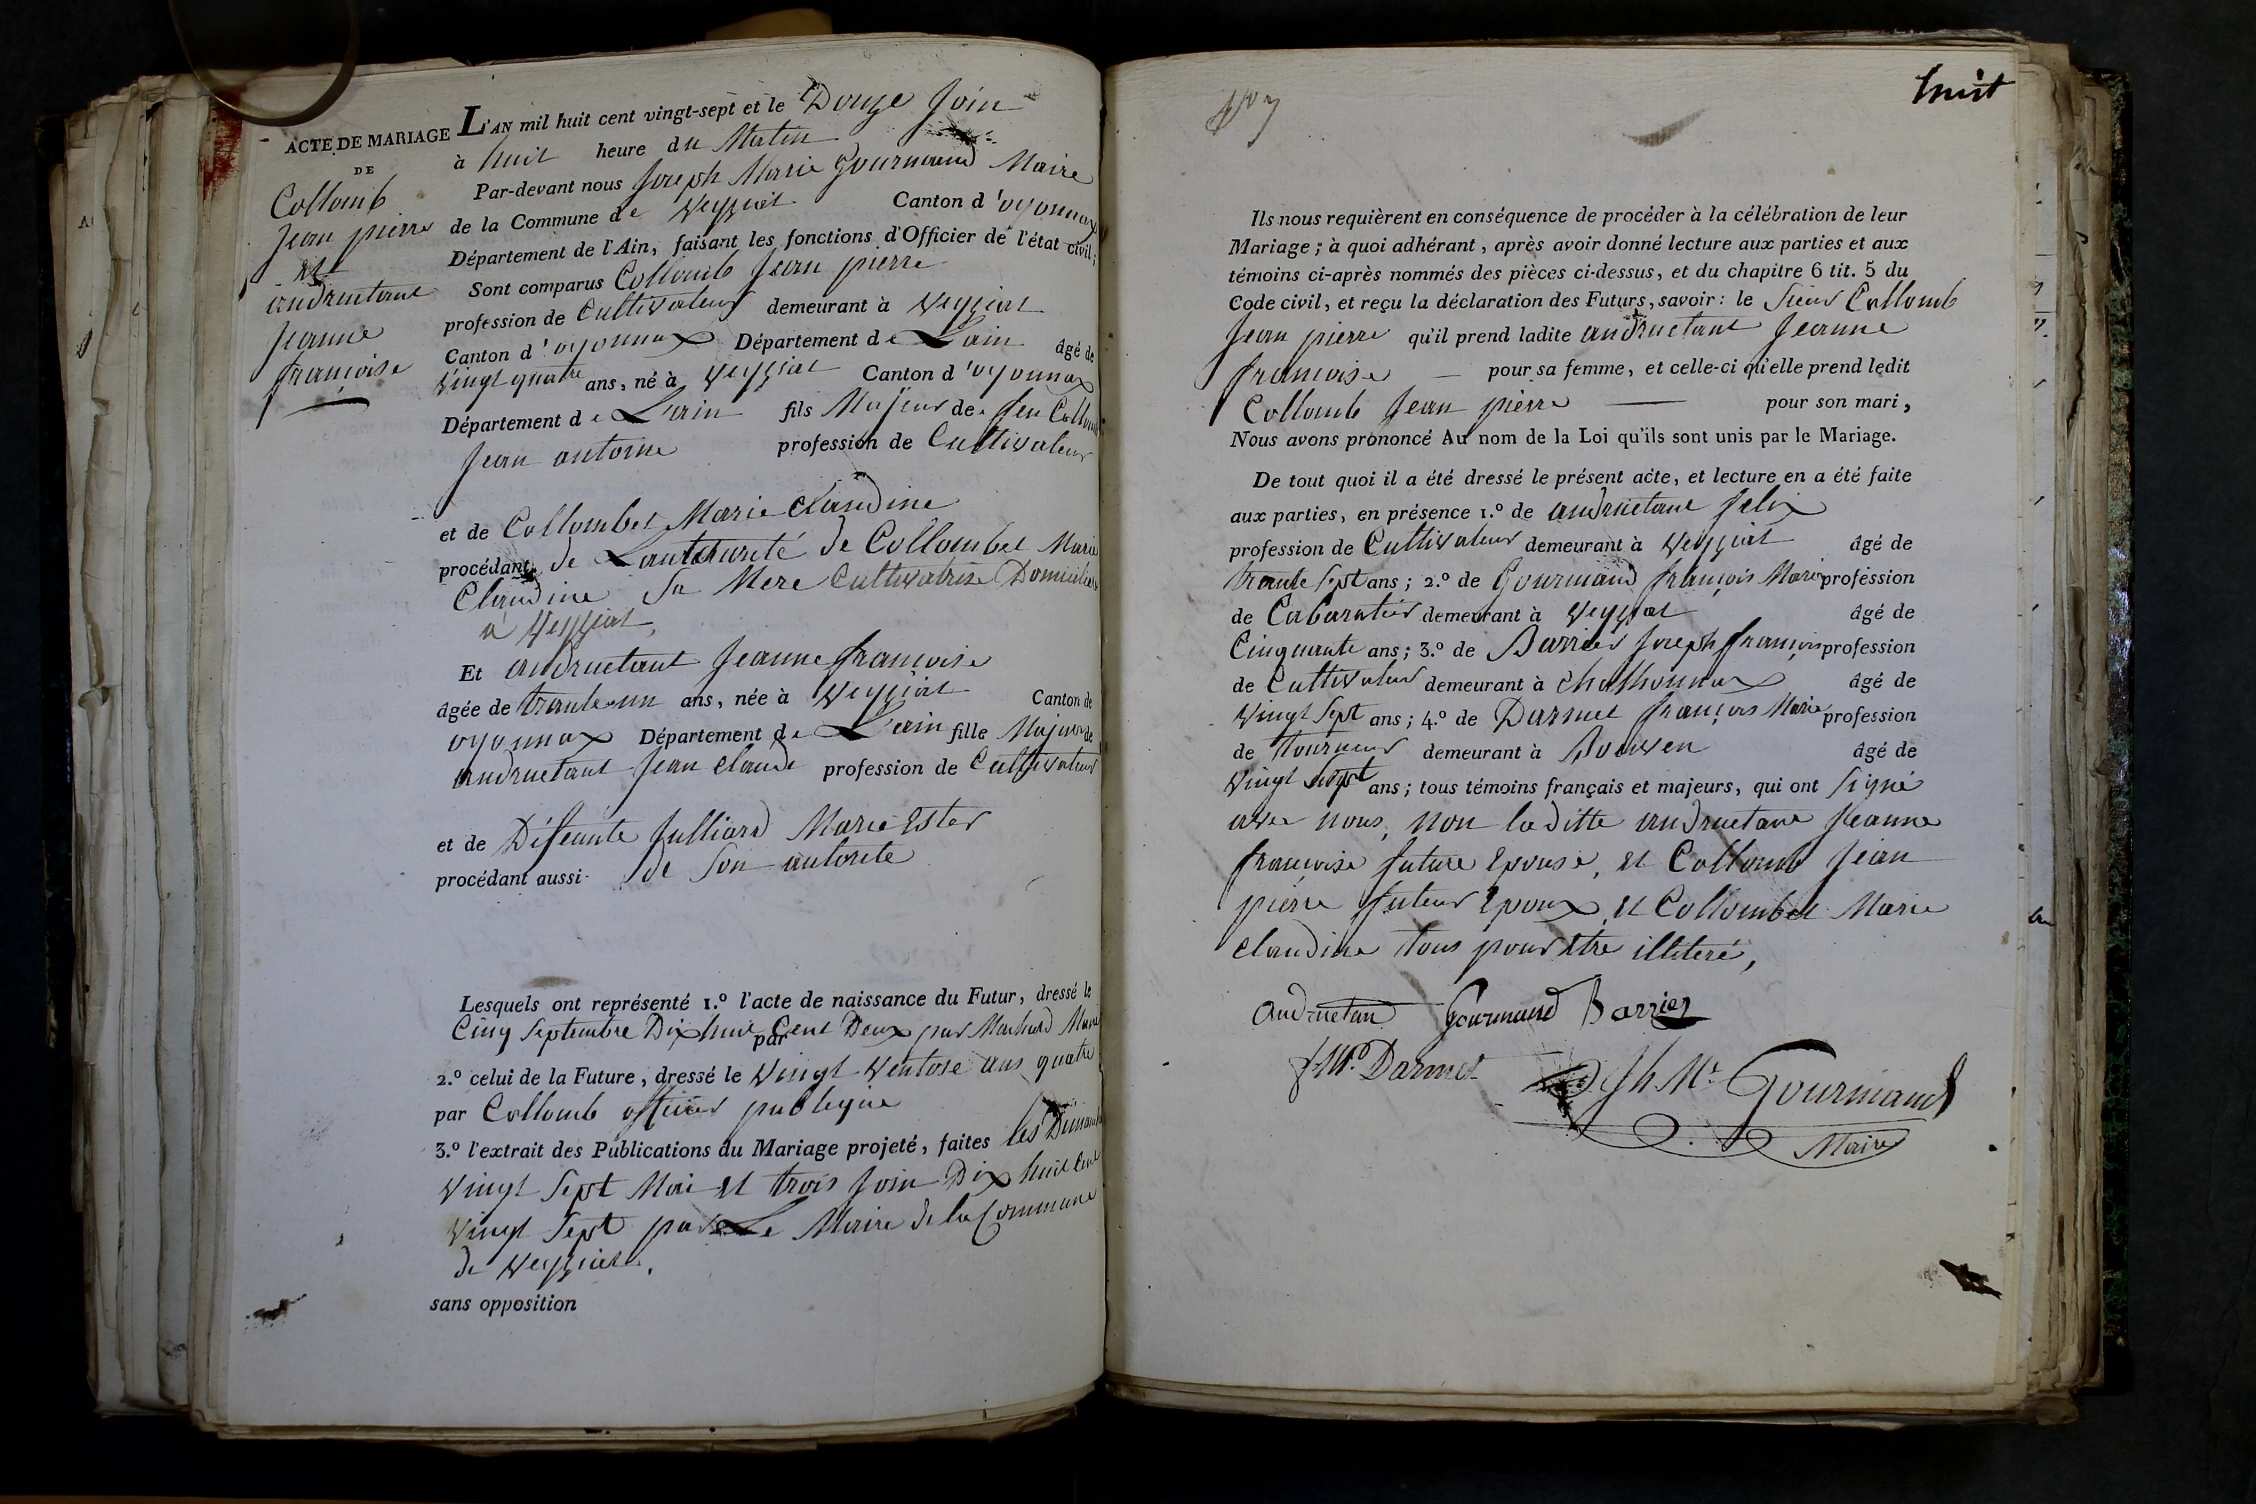 ACTE DE MARIAGE
DE
Collomb
Jean pierre
et
andruetant
Jeanne
françoise
L'AN mil huit cent vingt-sept et le Douze Join
à huit heure du Matin
Par-devant nous Joseph Marie Gourmand Maire
de la Commune de Veyziat Canton d'oyonnax
Département de l'Ain, faisant les fonctions d'Officier de l'état civil;
Sont comparus Collomb Jean pierre
profession de Cultivateur demeurant à Veyziat
Canton d'oyonnax Département de L'ain âgé de
Vingt quatre ans, né à Veyziat Canton d'oyonnax
Département de L'ain fils Majeur de feu Collomb
Jean antoine profession de Cultivateur
et de Collombet Marie Claudine
procédant de Lautorité de Collombet Marie
Claudine Sa Mere Cultivatrise Domiciliée
a Veyziat,
Et andruetant Jeanne françoise
âgée de trante un ans, née à Veyziat Canton de
oyonnax Département de L'ain fille Majeur de
andruetant Jean Claude profession de Cultivateur
et de Défeunte Julliard Marie Ester
procédant aussi de Son autorite
Lesquels ont représenté 1.º l'acte de naissance du Futur, dressé le
Cinq Septembre Dix huit Cent Deux par Machard Maire
par
2.º celui de la Future, dressé le Vingt Ventose ans quatre
par Collomb officier publique
3.º l'extrait des Publications du Mariage projeté, faites les Dimanche
Vingt Sept Mai et trois Join Dix huit Cent
Vingt Sept par Le Maire de la Commune
de Veyziat.
sans opposition
Nº 7
huit
Ils nous requièrent en conséquence de procéder à la célébration de leur
Mariage; à quoi adhérant, après avoir donné lecture aux parties et aux
témoins ci-après nommés des pièces ci-dessus, et du chapitre 6 tit. 5 du
Code civil, et reçu la déclaration des Futurs, savoir: le Sieur Collomb
Jean pierre qu'il prend ladite andruetant Jeanne
francoise — pour sa femme, et celle-ci qu'elle prend ledit
Collomb Jean pierre — pour son mari,
Nous avons prononcé Au nom de la Loi qu'ils sont unis par le Mariage.
De tout quoi il a été dressé le présent acte, et lecture en a été faite
aux parties, en présence 1.º de andruetant felix
profession de Cultivateur demeurant à Veyziat âgé de
trante Sept ans; 2.º de Gourmand françois Marie profession
de Cabaratier demeurant à Veyziat âgé de
Cinquante ans; 3.º de Barrier Joseph françois profession
de Cultivateur demeurant à Chathonnax âgé de
Vingt Sept ans; 4.º de Darmet françois Marie profession
de tourneur demeurant à Bouven âgé de
Vingt Sept ans; tous témoins français et majeurs, qui ont Signé
avec nous, non laditte andruetant Jeanne
françoise future Epouse, et Collomb Jean
pierre futeur Epoux et Collombet Marie
claudine tous pour Etre illiteré,
Andruetan Gourmand Barrier
f. Mie Darmet Jph Mie Gourmand
Maire